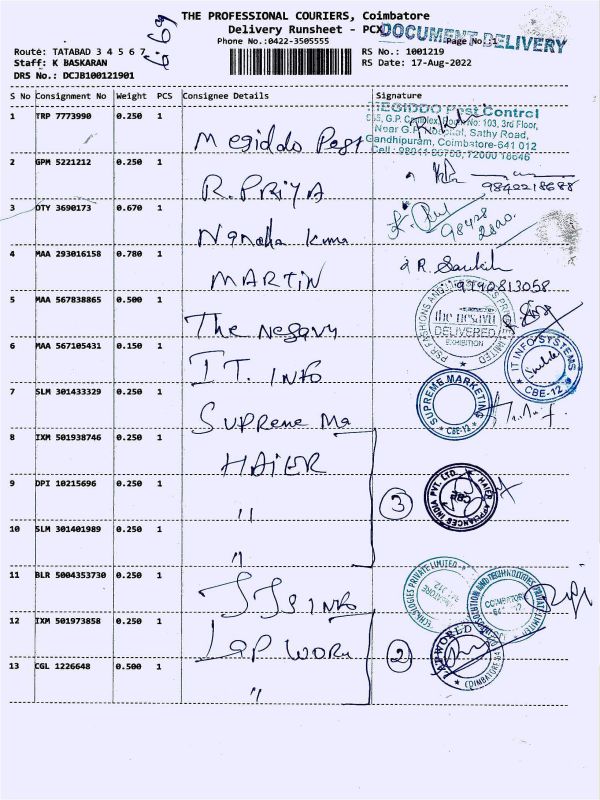 THE PROFESSIONAL COURIERS, Coimbatore
Delivery Runsheet - PCX
DOCUMENT DELIVERY
Phone No.:0422-3505555
Page No.:1
Route: TATABAD 3 4 5 6 7
RS No.: 1001219
Staff: K BASKARAN
RS Date: 17-Aug-2022
DRS No.: DCJB100121901
S No Consignment No Weight PCS Consignee Details Signature
1 TRP 7773990 0.250 1 Megiddo Pest
MEGIDDO Pest Control
G.P. Complex, Room No: 103, 3rd Floor,
Near G.P. Hospital, Sathy Road,
Gandhipuram, Coimbatore-641 012
2 GPM 5221212 0.250 1 R. PRIYA
9842218688
3 DTY 3690173 0.670 1
98428
4 MAA 293016158 0.780 1 MARTIN
9790813058
5 MAA 567838865 0.500 1 The Nesavu
PSR FASHIONS AND PRIVATE LIMITED
the nesavu
DELIVERED
EXHIBITION
6 MAA 567105431 0.150 1 I.T. INFO
IT INFO SYSTEMS
CBE-12
7 SLM 301433329 0.250 1 Supreme Ma
SUPREME MARKETING
CBE-12
8 IXM 501938746 0.250 1 HAIER
9 DPI 10215696 0.250 1 "
3
HAIER APPLIANCES INDIA PVT. LTD.
CBE
10 SLM 301401989 0.250 1 "
11 BLR 5004353730 0.250 1
PRIVATE LIMITED
COIMBATORE
12 IXM 501973858 0.250 1 Lap World
2
LAP WORLD
COIMBATORE
13 CGL 1226648 0.500 1 "